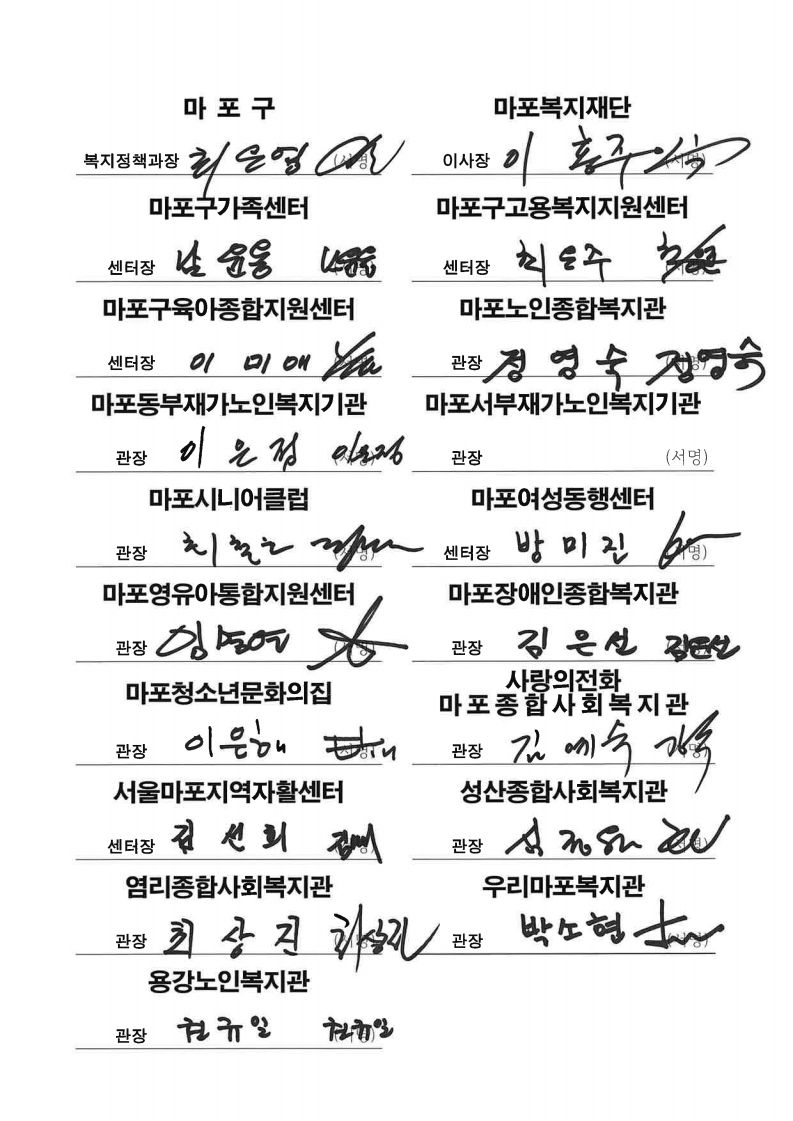 마 포 구
복지정책과장 최은영 (서명)
마포복지재단
이사장 이 홍주 (서명)
마포구가족센터
센터장 남윤웅
마포구고용복지지원센터
센터장 최은주
마포구육아종합지원센터
센터장 이 미 애
마포노인종합복지관
관장 정 영 숙 정영숙
마포동부재가노인복지기관
관장 이 은 정
마포서부재가노인복지기관
관장 (서명)
마포시니어클럽
관장
마포여성동행센터
센터장 방 미 진 (서명)
마포영유아통합지원센터
관장
마포장애인종합복지관
관장 김 은 선 김은선
마포청소년문화의집
관장 이은해
사랑의전화
마포종합사회복지관
관장 김 예 숙
서울마포지역자활센터
센터장 김 선 희
성산종합사회복지관
관장
염리종합사회복지관
관장 최 상 진
우리마포복지관
관장 박소현
용강노인복지관
관장 천규일 천규일